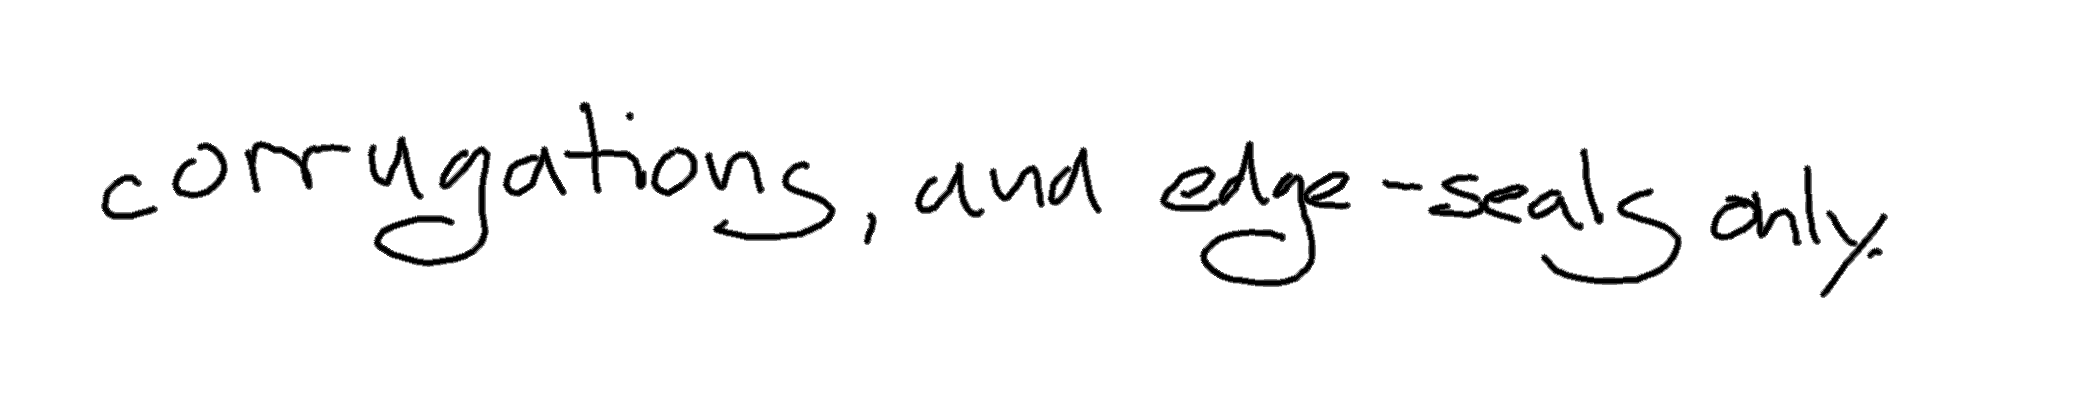 corrugations, and edge-seals only.